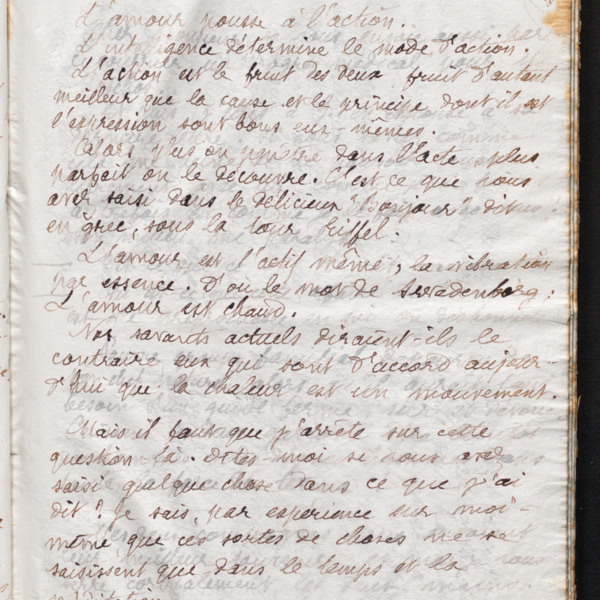 L'amour pousse à l'action.
L'intelligence détermine le mode d'action.
L'action est le fruit des deux fruit d'autant
meilleur que la cause et le principe dont il est
l'expression sont bons eux-mêmes.
Alors plus on pénètre dans l'acte plus
parfait on le découvre. C'est ce que nous
avez saisi dans le délicieux "Bonjour" dit
en grec, sous la tour Eiffel.
L'amour est l'actif même, la vibration
par essence. D'où le mot de Swedenborg :
L'amour est chaud.
Nos savants actuels diraient-ils le
contraire eux qui sont d'accord aujour-
d'hui que la chaleur est un mouvement.
Mais il faut que j'arrête sur cette
question là. Dites moi si vous avez
saisi quelque chose dans ce que j'ai
dit ? Je sais, par expérience sur moi-
même que ces sortes de choses ne se
saisissent que dans le temps et la